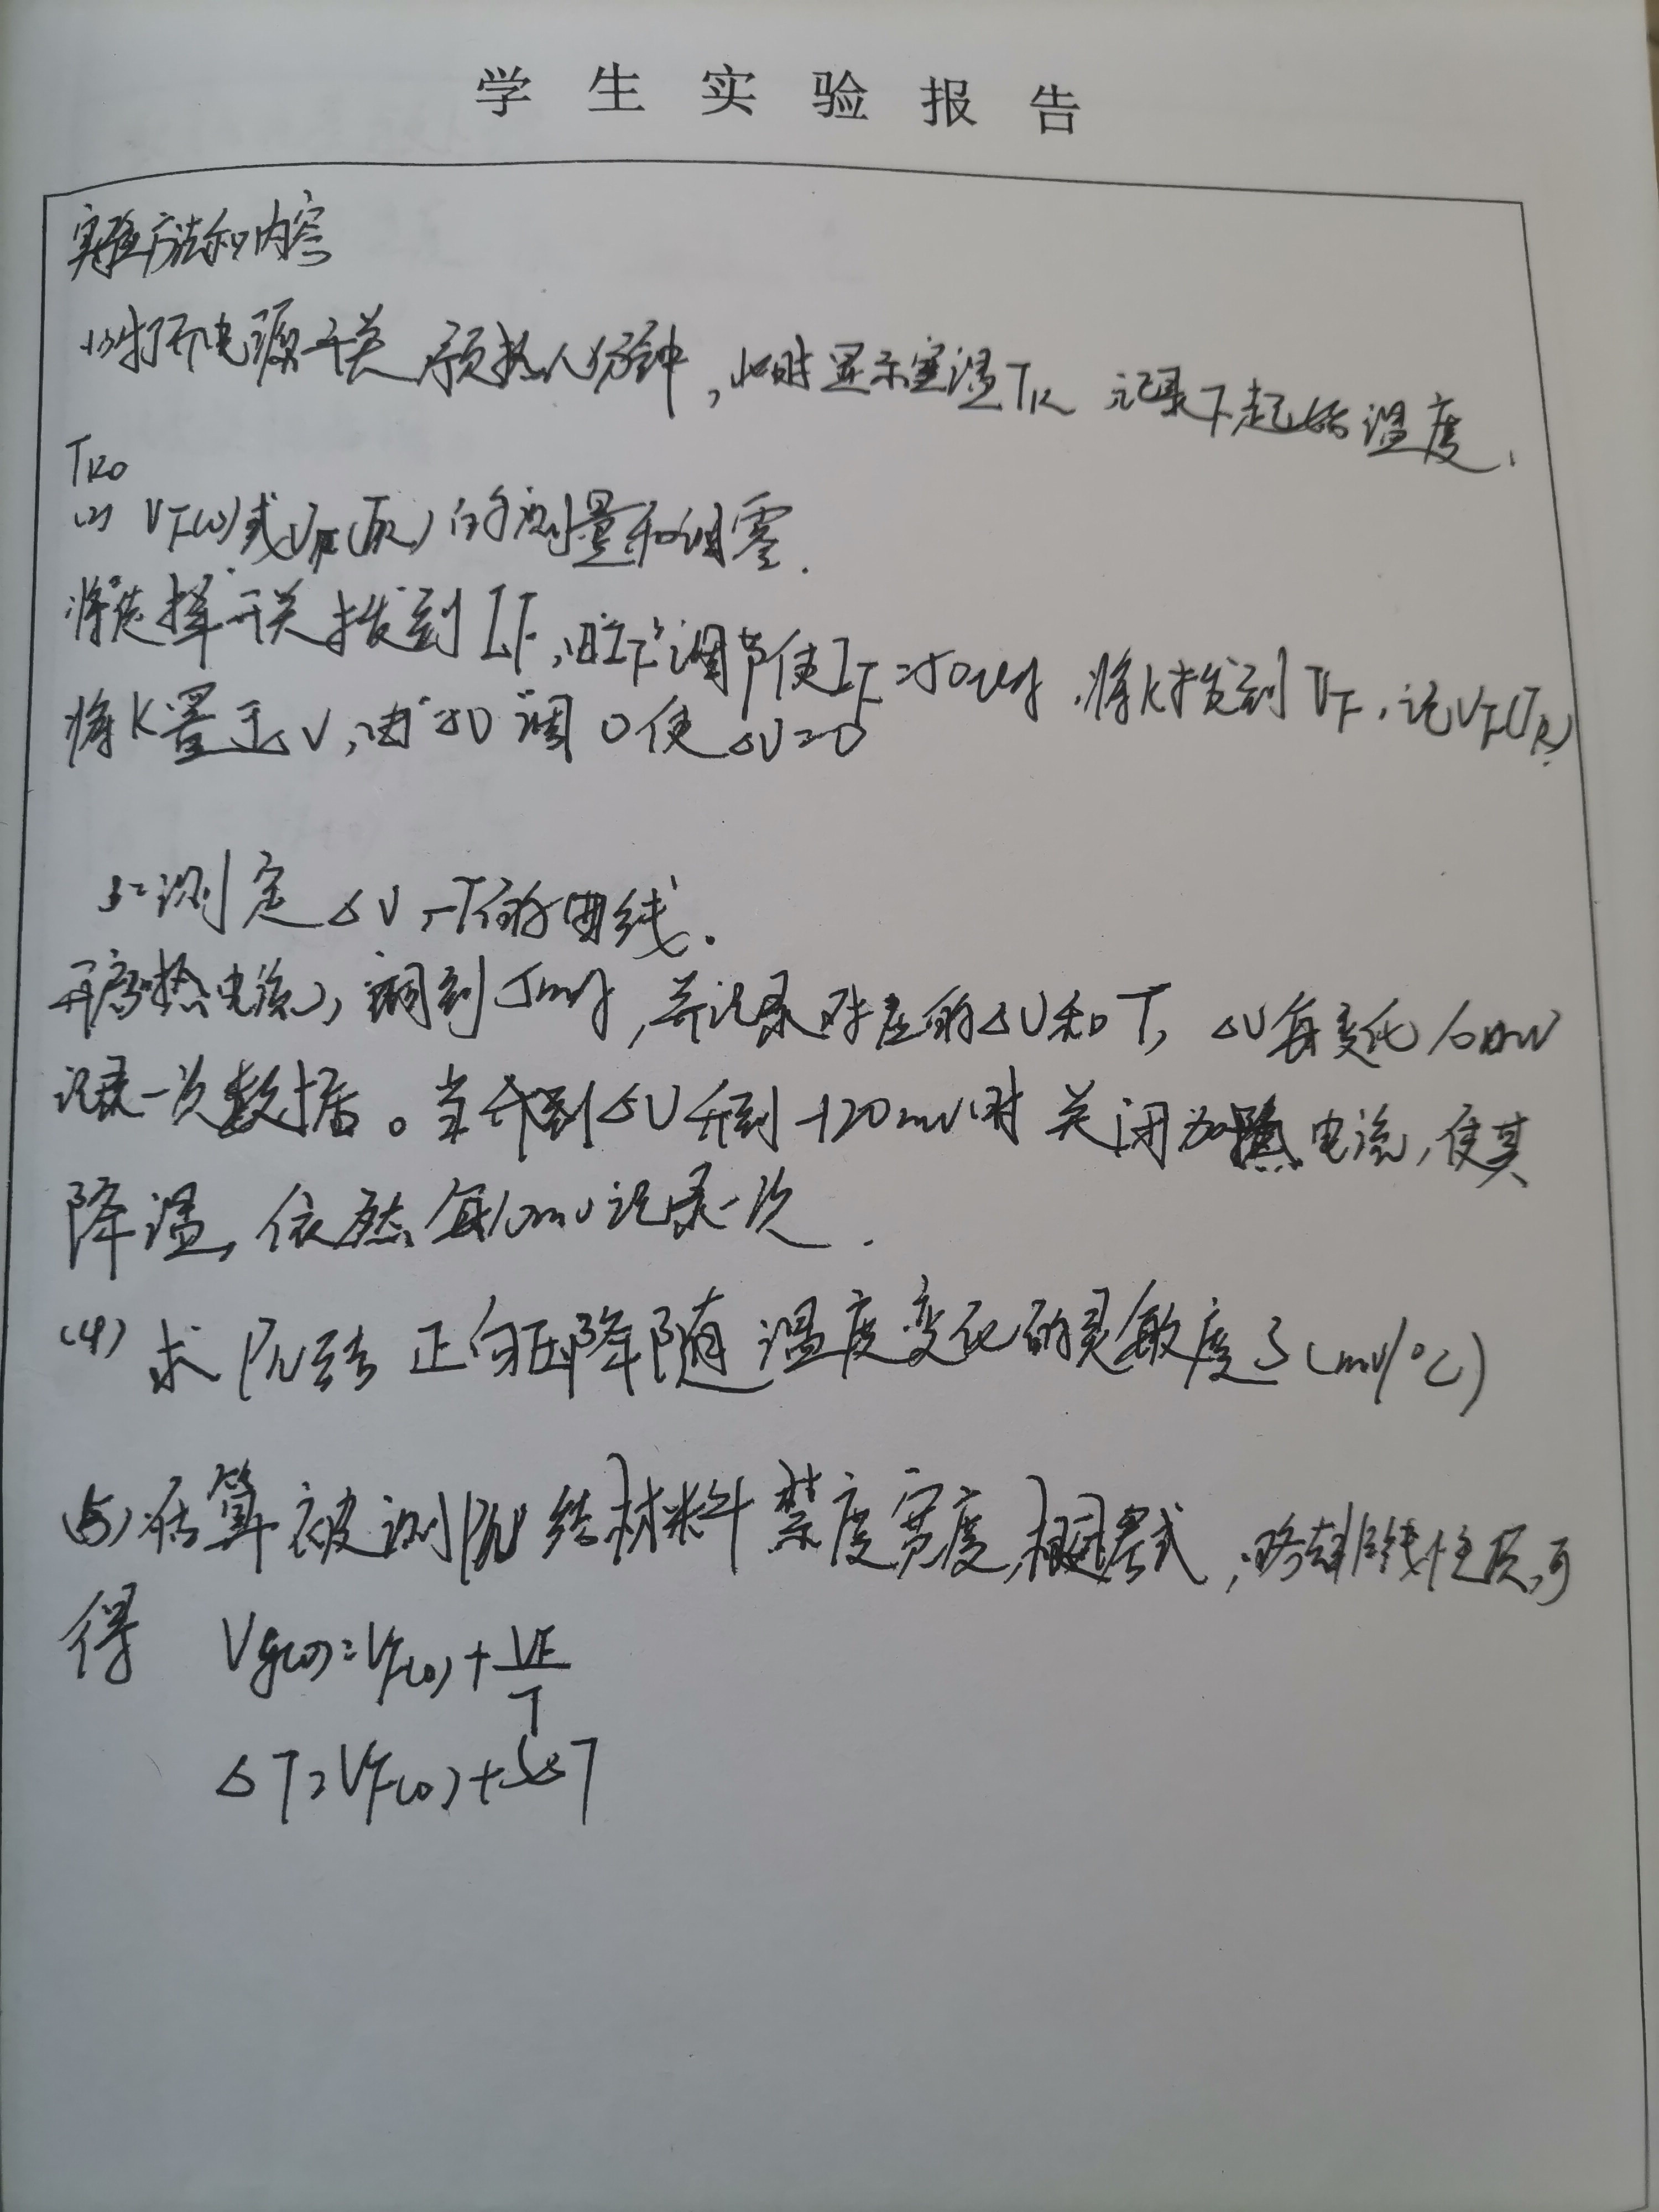 学生实验报告
实验方法和内容
(1)打开电源开关 预热几分钟，此时显示室温TR 记录下起始温度，
TR0
(2) VF(0)或VF(TR)的测量和调零.
将"选择"开关拨到IF，由"IF"调节使IF=50uA，将K拨到VF，记VF(TR)
将K置于△V，由"△V"调0使△V=0
测定△V-T的曲线.
开启加热电流，调到 mA，并记录对应的△V和T，△V每变化10mV
记录一次数据。当 到△V升到-120mV时关闭加热电流，使其
降温，依然每10mV记录一次.
(4) 求PN结正向压降随温度变化的灵敏度S(mV/℃)
(5)估算被测PN结材料禁度宽度，根据 式，略去非线性项，可
得 Vg(0)=VF(0)+VF/T
△T=VF(0)+S△T